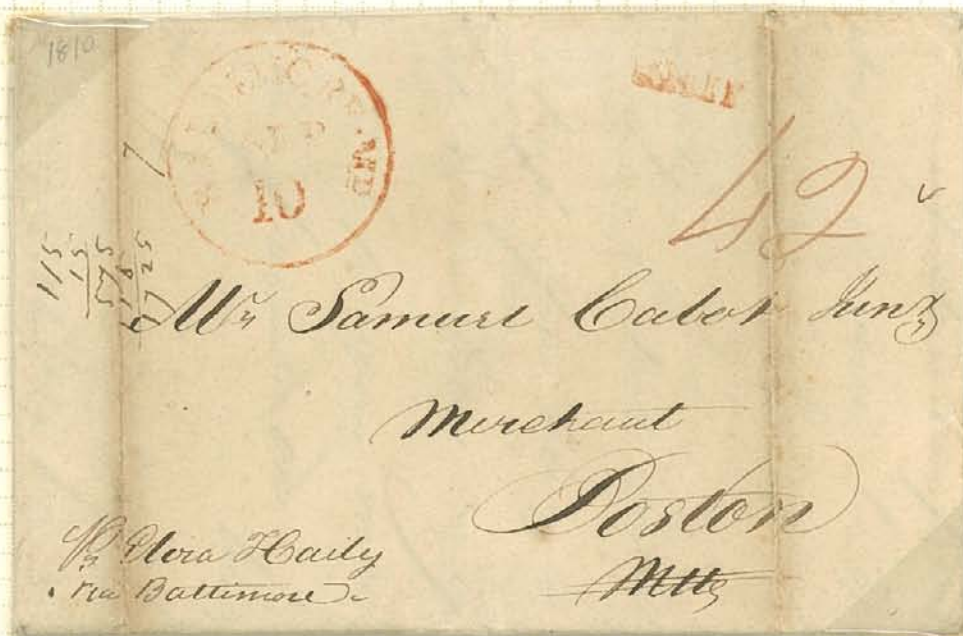 1810
BALTIMORE MD
SEP
10
SHIP
42
525
18
575
15
115
Mr Samuel Cabot Junr
Merchant
Boston
Mtts
Pr Haily
via Baltimore